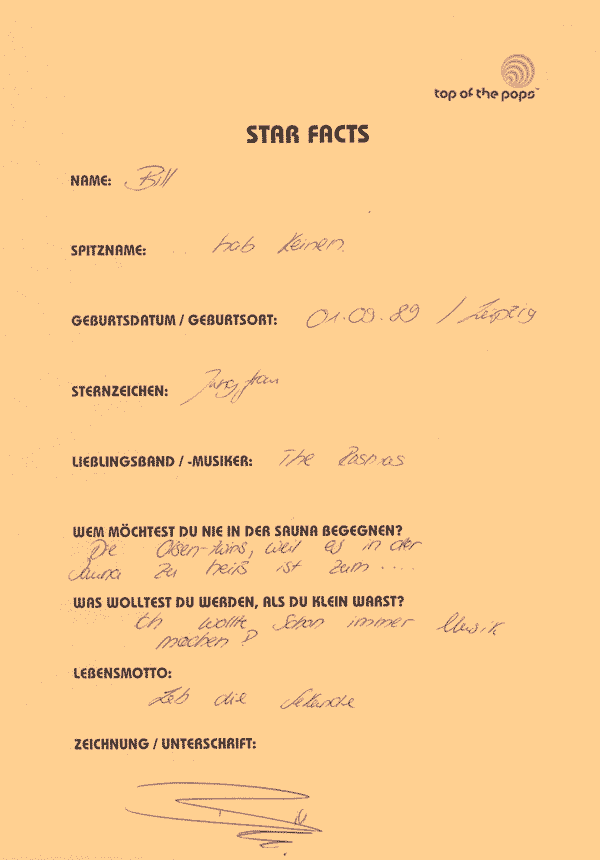 top of the pops™
STAR FACTS
NAME: Bill
SPITZNAME: hab keinen
GEBURTSDATUM / GEBURTSORT: 01.09.89 / Leipzig
STERNZEICHEN: Jungfrau
LIEBLINGSBAND / -MUSIKER: The Rasmus
WEM MÖCHTEST DU NIE IN DER SAUNA BEGEGNEN?
Die Olsen-twins, weil es in der
Sauna zu heiß ist zum ....
WAS WOLLTEST DU WERDEN, ALS DU KLEIN WARST?
Ich wollte schon immer Musik
machen!
LEBENSMOTTO:
Leb die Sekunde
ZEICHNUNG / UNTERSCHRIFT: